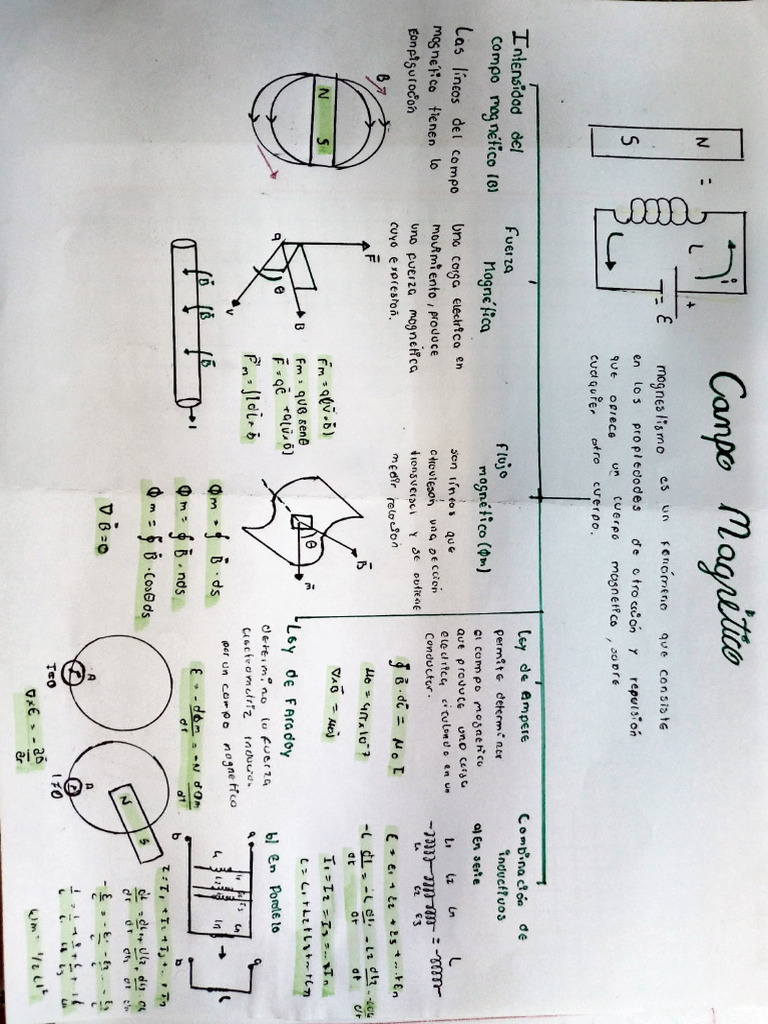 Campo Magnético
magnestismo es un fenómeno que consiste
en los propiedades de atracción y repulsión
que ofrece un cuerpo magnetico, sobre
cualquier otro cuerpo.
N
S
=
L
i
+
ε
Intensidad del
campo magnético (B)
Las líneas del campo
magnético tienen la
configuración
B
N S
Fuerza
Magnética
Una carga electrica en
movimiento, produce
una fuerza magnetica
cuya expresión.
F̄
q
θ
B
v
F̄m = q(v̄ x B̄)
Fm = qvB senθ
F̄ = qε̄ + q(v̄ x B̄)
F̄m = ∫Idl̄ x B̄
B̄ B̄ B̄
I
Flujo
magnético (Φm)
son líneas que
atraviesan una sección
transversal y se obtiene
medir relación
B̄
θ
n̄
Φm = ∮ B̄ . ds
Φm = ∮ B̄ . nds
Φm = ∮ B̄ . cosθds
∇B̄ = 0
Ley de Ampere
permite determinar
el campo magnetico
que produce una carga
electrica circulando en un
conductor.
∮ B̄ . dl̄ = μo I
μo = 4π x 10⁻⁷
∇ x B̄ = μoJ
Ley de Faraday
determina la fuerza
electromotriz inducida
por un campo magnetico
ε = -dΦm/dt = -N dΦm/dt
A
I=0
A
I≠0
N S
∇xε = -∂B̄/∂t
Combinación de
inductivos
a) En serie
L1 L2 Ln L
ε = ε1 + ε2 + ε3 + ... + εn
I1 = I2 = I3 = ... = In
L = L1 + L2 + L3 + ... + Ln
b) En Paralelo
a
b
a
b
L
I = I1 + I2 + I3 + ... + In
Wm = 1/2 LI²